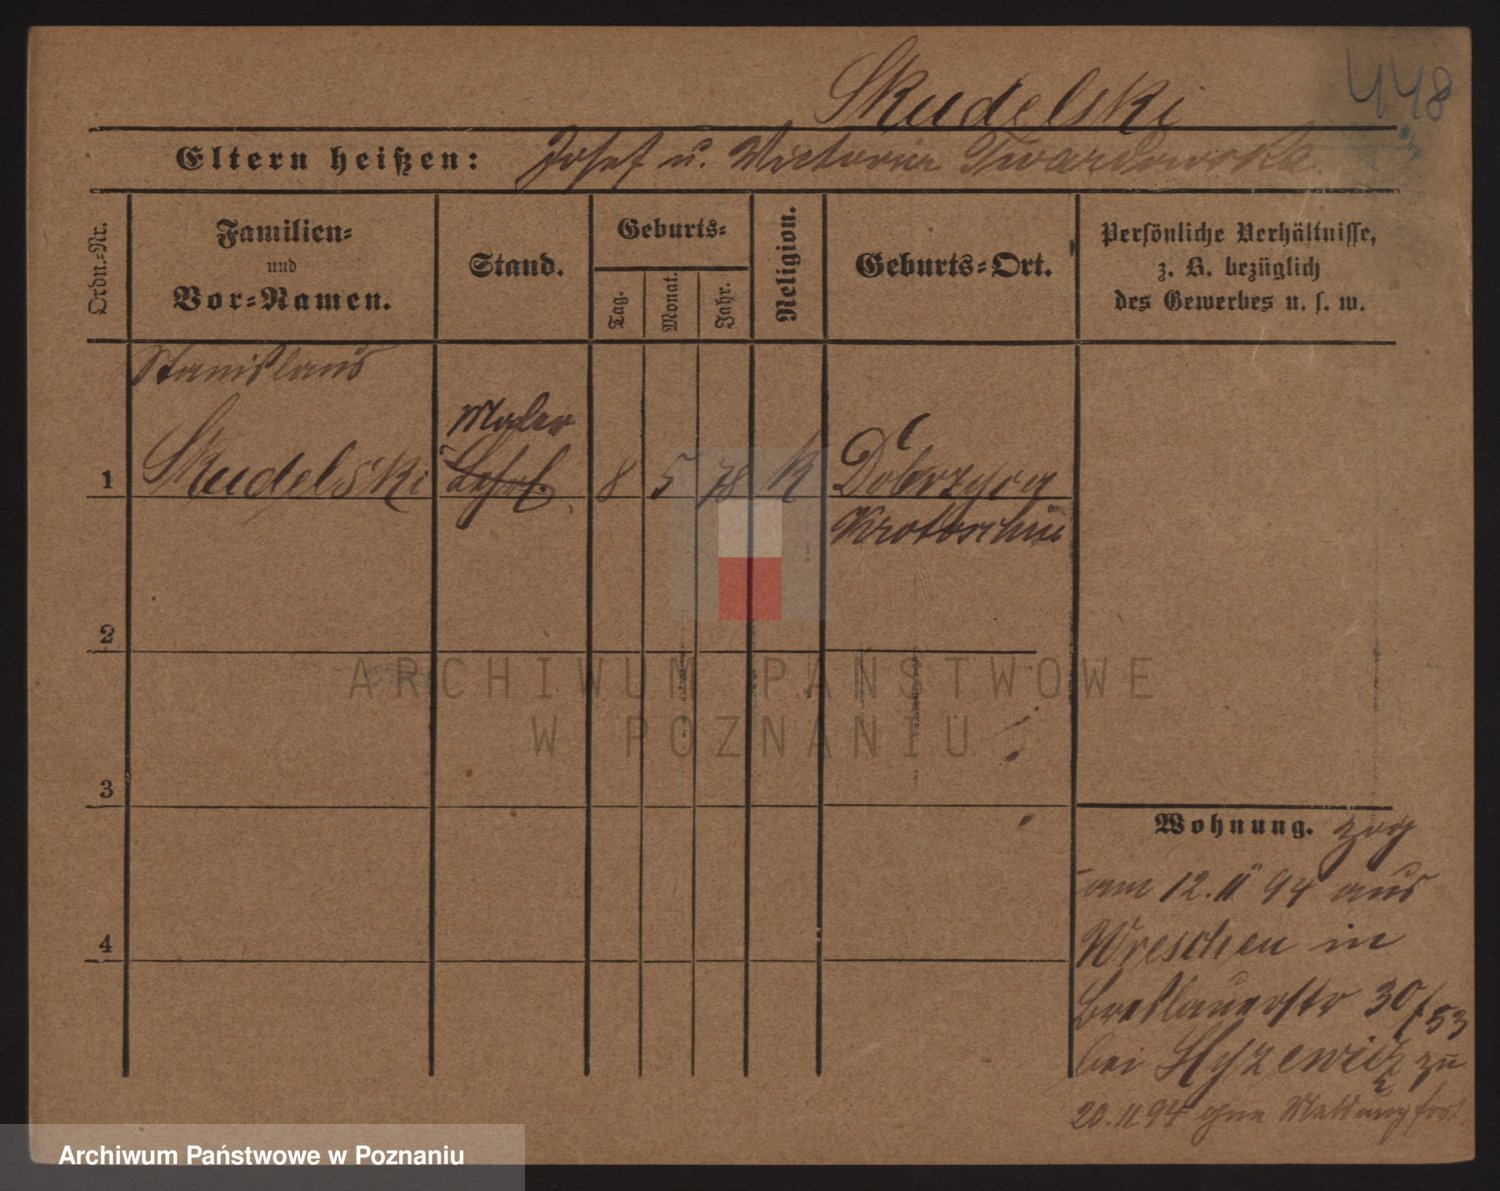 448
Skudelski
Eltern heißen: Josef u. Victoria Twardowska
Ordn.-Nr.
Familien-
und
Vor-Namen.
Stand.
Geburts-
Tag.
Monat.
Jahr.
Religion.
Geburts-Ort.
Persönliche Verhältnisse,
z. B. bezüglich
des Gewerbes u. s. w.
Stanislaus
Maler
1 Skudelski Lehrl. 8 5 78 K Dobrzyca
Krotoschin
2
3
4
Wohnung. zog
am 12.11 94 aus
Wreschen in
Breslauerstr 30/53
bei zu
20.11 94 ohne Meldung fort
ARCHIWUM PAŃSTWOWE
W POZNANIU
Archiwum Państwowe w Poznaniu